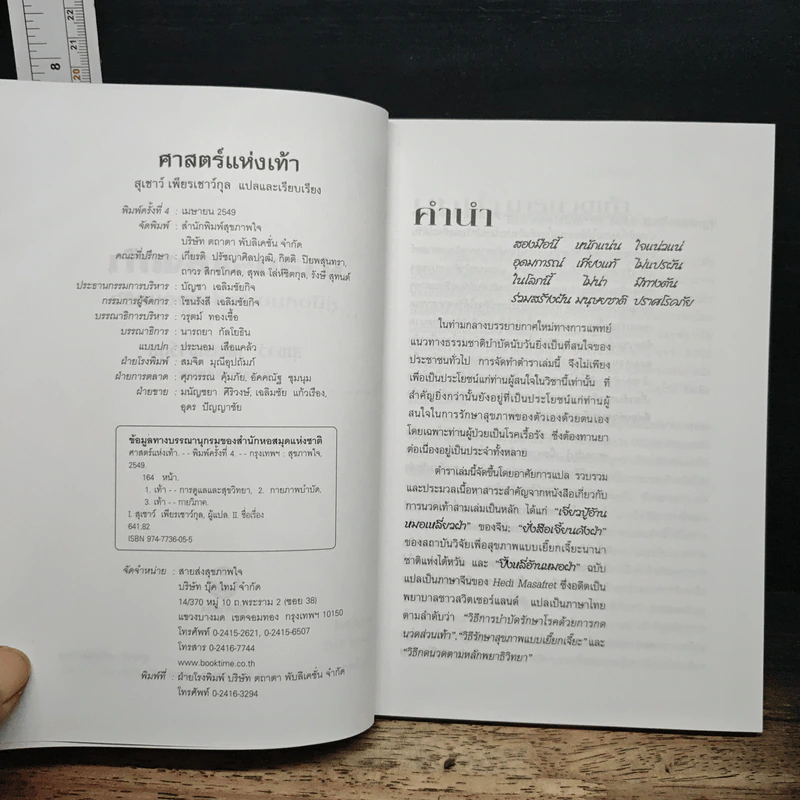 8
22
21
20
ศาสตร์แห่งเท้า
สุเชาว์ เพียรเชาว์กุล แปลและเรียบเรียง
พิมพ์ครั้งที่ 4 : เมษายน 2549
จัดพิมพ์ : สำนักพิมพ์สุขภาพใจ
บริษัท ตถาตา พับลิเคชั่น จำกัด
คณะที่ปรึกษา : เกียรติ ปรัชญาศิลปวุฒิ, กิตติ ปิยพสุนทรา,
ถาวร สิกขโกศล, สุพล โล่ห์ชิตกุล, รังษี สุทนต์
ประธานกรรมการบริหาร : บัญชา เฉลิมชัยกิจ
กรรมการผู้จัดการ : โชนรังสี เฉลิมชัยกิจ
บรรณาธิการบริหาร : วรุตม์ ทองเชื้อ
บรรณาธิการ : นารถยา กัลโยธิน
แบบปก : ประนอม เสือแคล้ว
ฝ่ายโรงพิมพ์ : สมจิต มุณีอุปถัมภ์
ฝ่ายการตลาด : ศุภวรรณ คุ้มภัย, อัคคณัฐ ชุมนุม
ฝ่ายขาย : มนัญชยา ศิริวงษ์, เฉลิมชัย แก้วเรือง,
อุดร ปัญญาชัย
ข้อมูลทางบรรณานุกรมของสำนักหอสมุดแห่งชาติ
ศาสตร์แห่งเท้า. - - พิมพ์ครั้งที่ 4. - - กรุงเทพฯ : สุขภาพใจ,
2549.
164 หน้า.
1. เท้า - - การดูแลและสุขวิทยา, 2. กายภาพบำบัด.
3. เท้า - - กายวิภาค.
I. สุเชาว์ เพียรเชาว์กุล, ผู้แปล. II. ชื่อเรื่อง
641.82
ISBN 974-7736-05-5
จัดจำหน่าย : สายส่งสุขภาพใจ
บริษัท บุ๊ค ไทม์ จำกัด
14/370 หมู่ 10 ถ.พระราม 2 (ซอย 38)
แขวงบางมด เขตจอมทอง กรุงเทพฯ 10150
โทรศัพท์ 0-2415-2621, 0-2415-6507
โทรสาร 0-2416-7744
www.booktime.co.th
พิมพ์ที่ : ฝ่ายโรงพิมพ์ บริษัท ตถาตา พับลิเคชั่น จำกัด
โทรศัพท์ 0-2416-3294
คำนำ
สองมือนี้ หนักแน่น ใจแน่วแน่
อุดมการณ์ เที่ยงแท้ ไม่แปรผัน
ในโลกนี้ ไม่น่า มีทางตัน
ร่วมสร้างฝัน มนุษยชาติ ปราศโรคภัย
ในท่ามกลางบรรยายกาศใหม่ทางการแพทย์
แนวทางธรรมชาติบำบัดนับวันยิ่งเป็นที่สนใจของ
ประชาชนทั่วไป การจัดทำตำราเล่มนี้ จึงไม่เพียง
เพื่อเป็นประโยชน์แก่ท่านผู้สนใจในวิชานี้เท่านั้น ที่
สำคัญยิ่งกว่านั้นยังอยู่ที่เป็นประโยชน์แก่ท่านผู้
สนใจในการรักษาสุขภาพของตัวเองด้วยตนเอง
โดยเฉพาะท่านผู้ป่วยเป็นโรคเรื้อรัง ซึ่งต้องทานยา
ต่อเนื่องอยู่เป็นประจำทั้งหลาย
ตำราเล่มนี้จัดขึ้นโดยอาศัยการแปล รวบรวม
และประมวลเนื้อหาสาระสำคัญจากหนังสือเกี่ยวกับ
การนวดเท้าสามเล่มเป็นหลัก ได้แก่ "เจี่ยวปู้อ้าน
หมอเหลียวฝ่า" ของจีน; "ยั่งสือเจี้ยนคังฝ่า"
ของสถาบันวิจัยเพื่อสุขภาพแบบเยี๊ยกเจี๊ยะนานา
ชาติแห่งไต้หวัน และ "ปิ้งหลี่อ้านหมอฝ่า" ฉบับ
แปลเป็นภาษาจีนของ Hedi Masafret ซึ่งอดีตเป็น
พยาบาลชาวสวิตเซอร์แลนด์ แปลเป็นภาษาไทย
ตามลำดับว่า "วิธีการบำบัดรักษาโรคด้วยการกด
นวดส่วนเท้า","วิธีรักษาสุขภาพแบบเยี๊ยกเจี๊ยะ" และ
"วิธีกดนวดตามหลักพยาธิวิทยา"